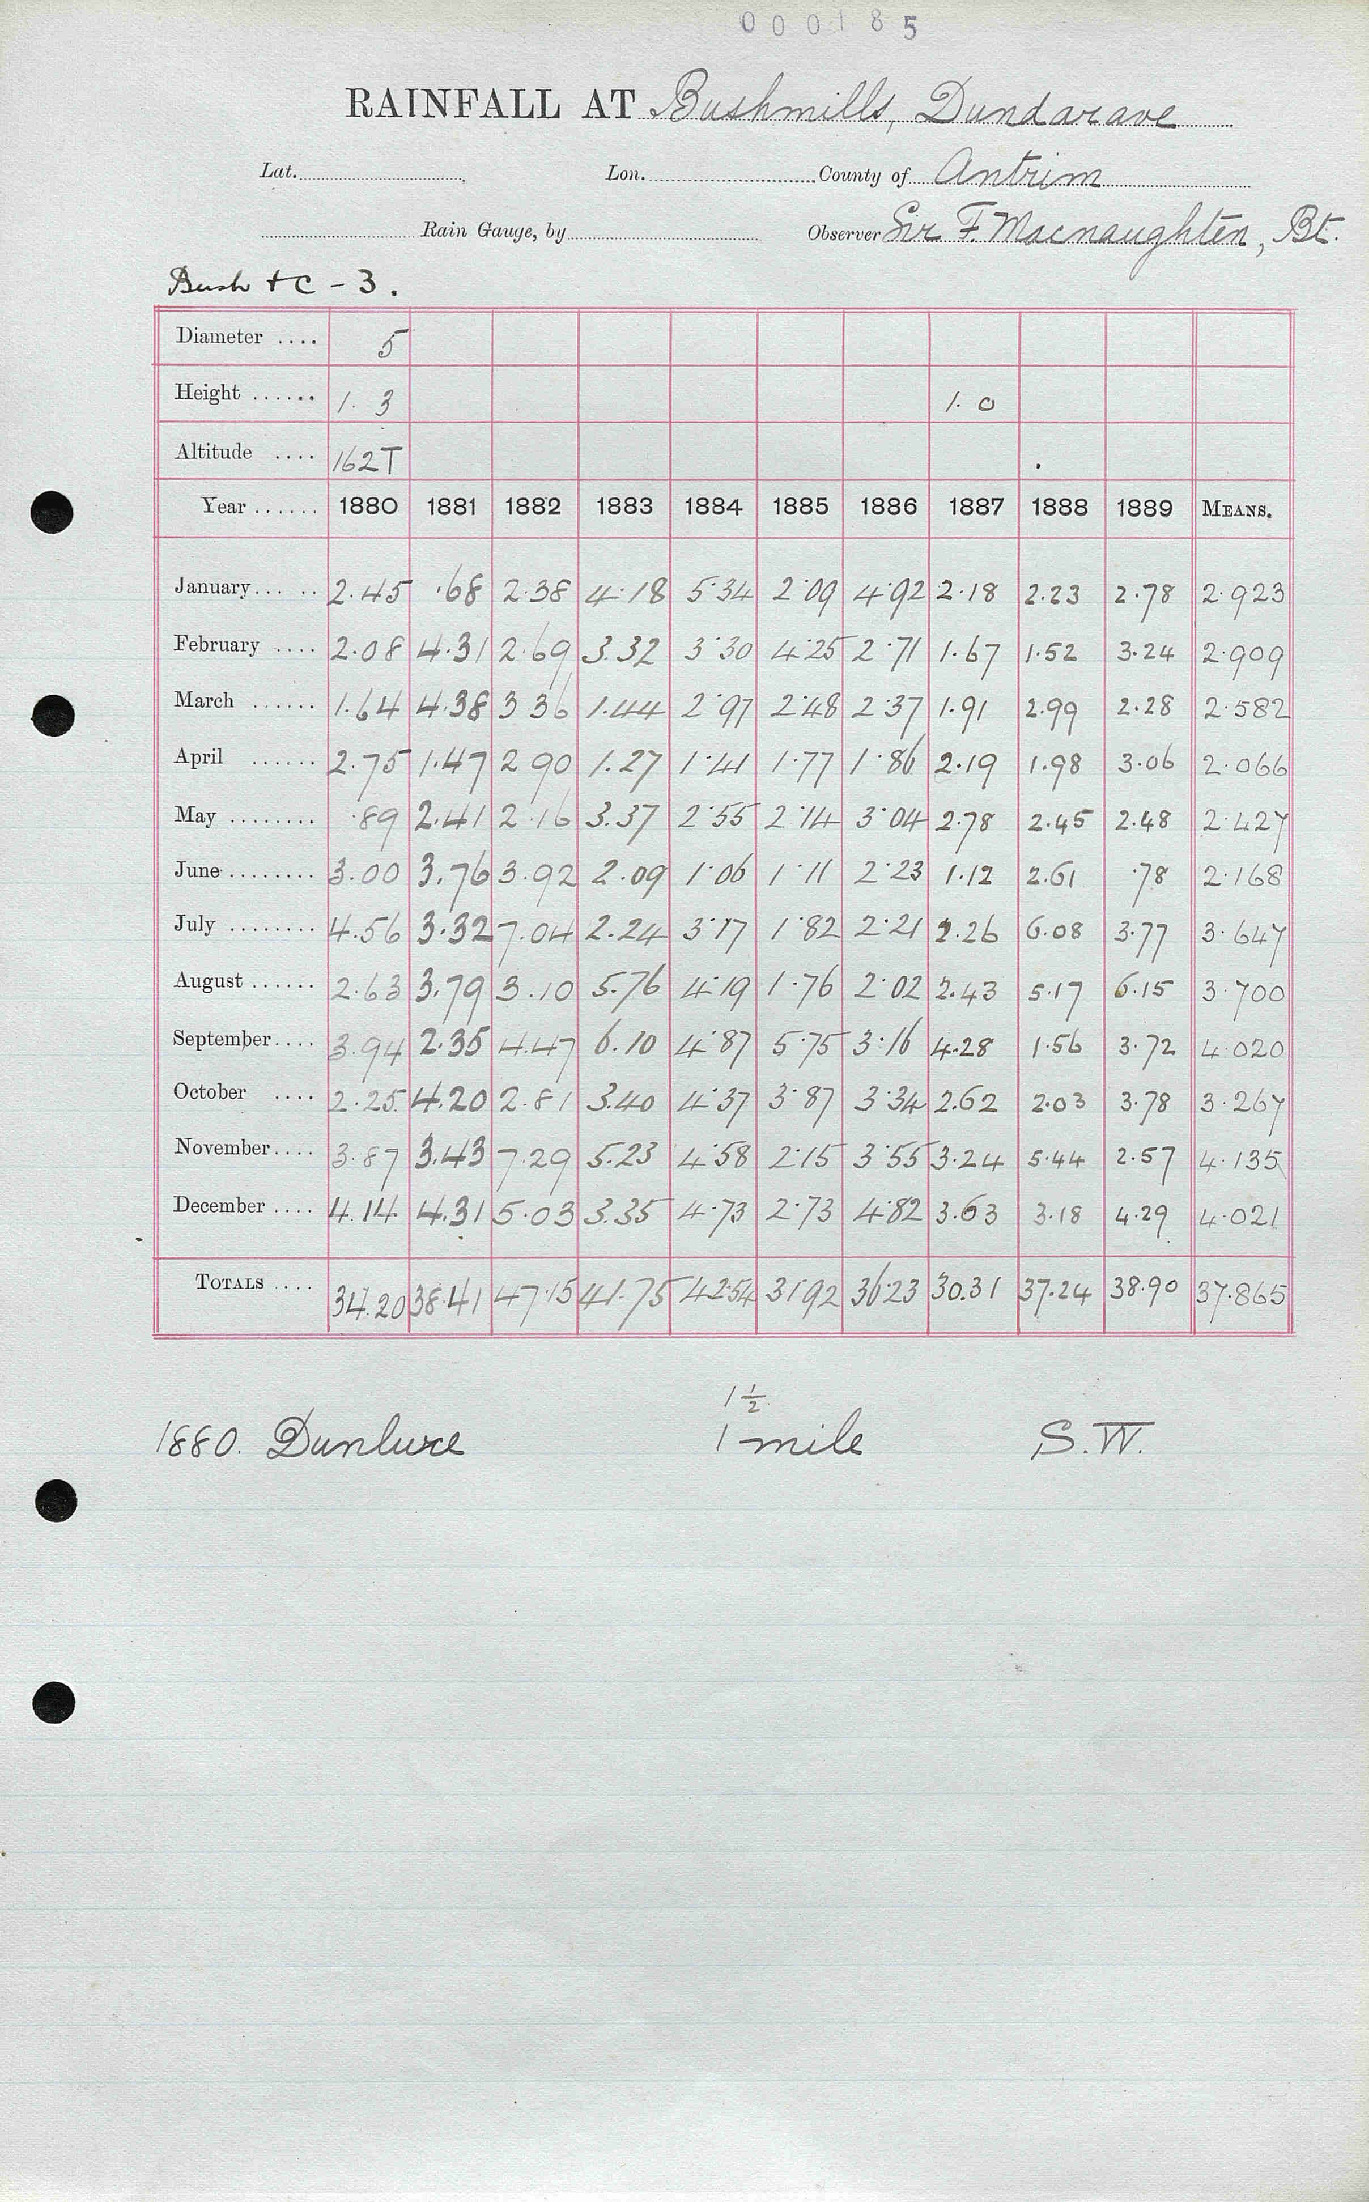 000185
RAINFALL AT Bushmills, Dundarave
Lat. Lon. County of Antrim
Rain Gauge, by Observer Sir F. Macnaughten, Bt.
Bush + C - 3.
Diameter .... 5
Height ...... 1. 3 1. 0
Altitude .... 162T
Year ...... 1880 1881 1882 1883 1884 1885 1886 1887 1888 1889 MEANS.
January... .. 2.45 .68 2.38 4.18 5.34 2.09 4.92 2.18 2.23 2.78 2.923
February .... 2.08 4.31 2.69 3.32 3.30 4.25 2.71 1.67 1.52 3.24 2.909
March ...... 1.64 4.38 3 36 1.44 2.97 2.48 2.37 1.91 2.99 2.28 2.582
April ...... 2.75 1.47 2 90 1.27 1.41 1.77 1.86 2.19 1.98 3.06 2.066
May ........ .89 2.41 2.16 3.37 2.55 2.14 3.04 2.78 2.45 2.48 2.427
June ........ 3.00 3.76 3.92 2.09 1.06 1.11 2.23 1.12 2.61 .78 2.168
July ........ 4.56 3.32 7.04 2.24 3.17 1.82 2.21 2.26 6.08 3.77 3.647
August ...... 2.63 3.79 3.10 5.76 4.19 1.76 2.02 2.43 5.17 6.15 3.700
September .... 3.94 2.35 4.47 6.10 4.87 5.75 3.16 4.28 1.56 3.72 4.020
October .... 2.25 4.20 2.81 3.40 4.37 3.87 3.34 2.62 2.03 3.78 3.267
November .... 3.87 3.43 7.29 5.23 4.58 2.15 3.55 3.24 5.44 2.57 4.135
December .... 4.14 4.31 5.03 3.35 4.73 2.73 4.82 3.63 3.18 4.29 4.021
TOTALS .... 34.20 38.41 47.15 41.75 42.54 31.92 36.23 30.31 37.24 38.90 37.865
1 1/2
1880. Dunluce 1 mile S.W.